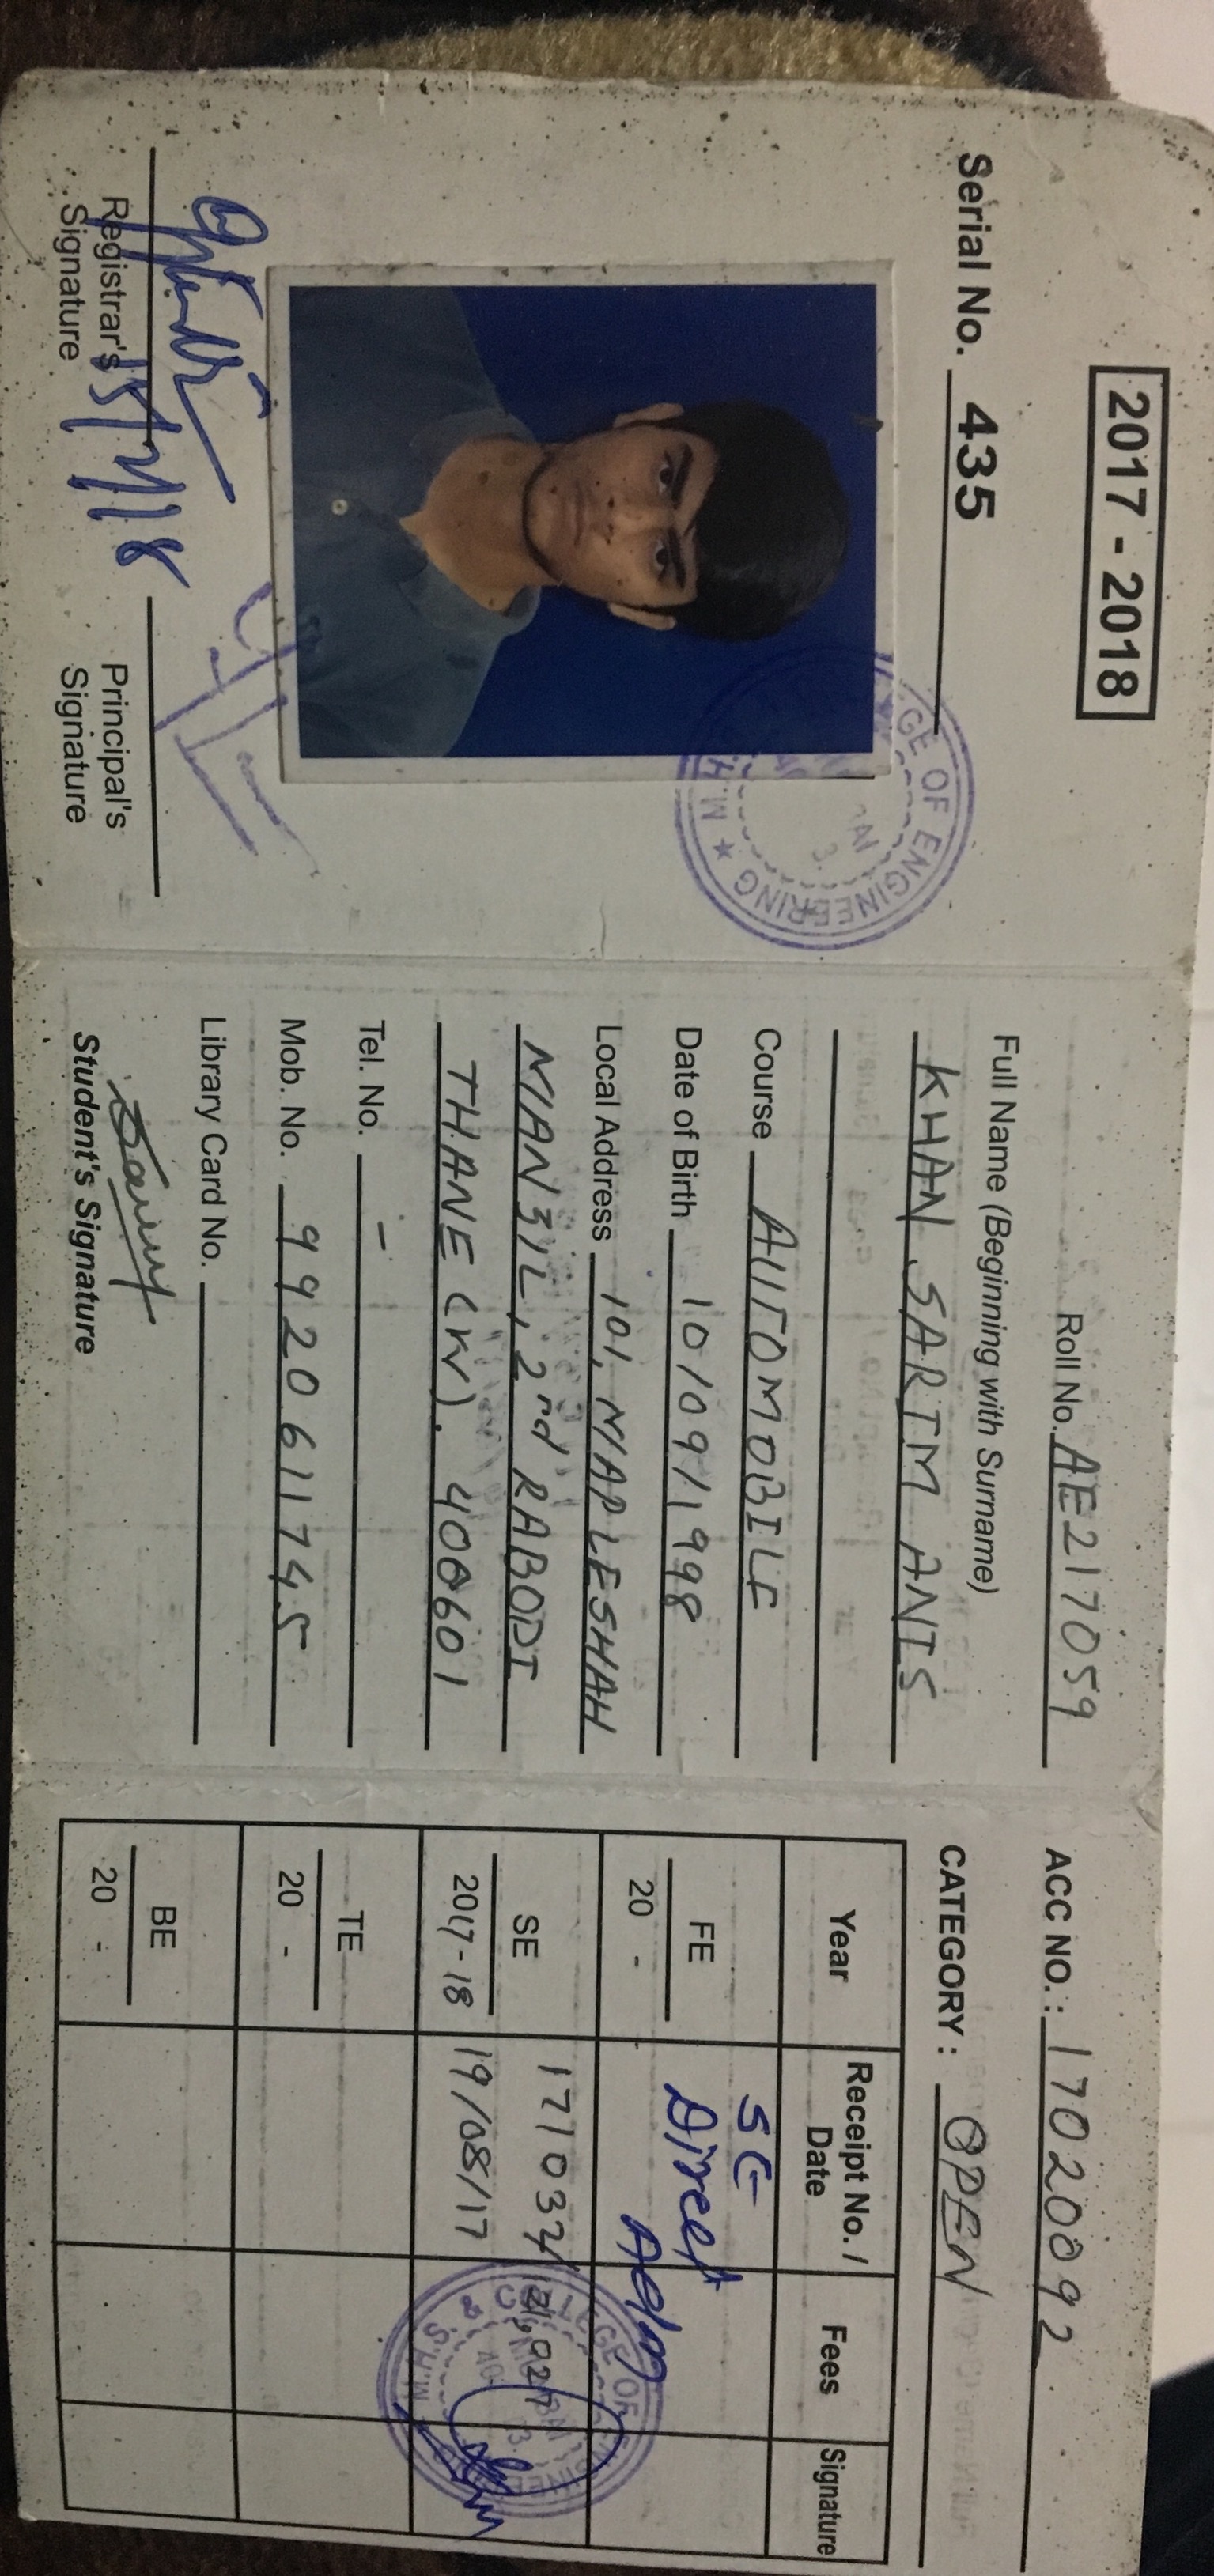 2017 - 2018
Serial No. 435
GE OF ENGINEERING ★ M.H
Registrar's Signature
15/2/18
Principal's Signature
Roll No. AE217059
Full Name (Beginning with Surname)
KHAN SARIM ANIS
Course AUTOMOBILE
Date of Birth 10/09/1998
Local Address 101, MAPLESHAH
MANZIL, 2nd RABODI
THANE (W). 400601
Tel. No. -
Mob. No. 9920611745
Library Card No.
Student's Signature
ACC NO. : 17020092
CATEGORY : OPEN
Year Receipt No. / Date Fees Signature
FE
20 -
SE Direct Adm
SE 171037
2017-18 19/08/17
TE
20 -
BE
20 -
M.H. S. & COLLEGE OF